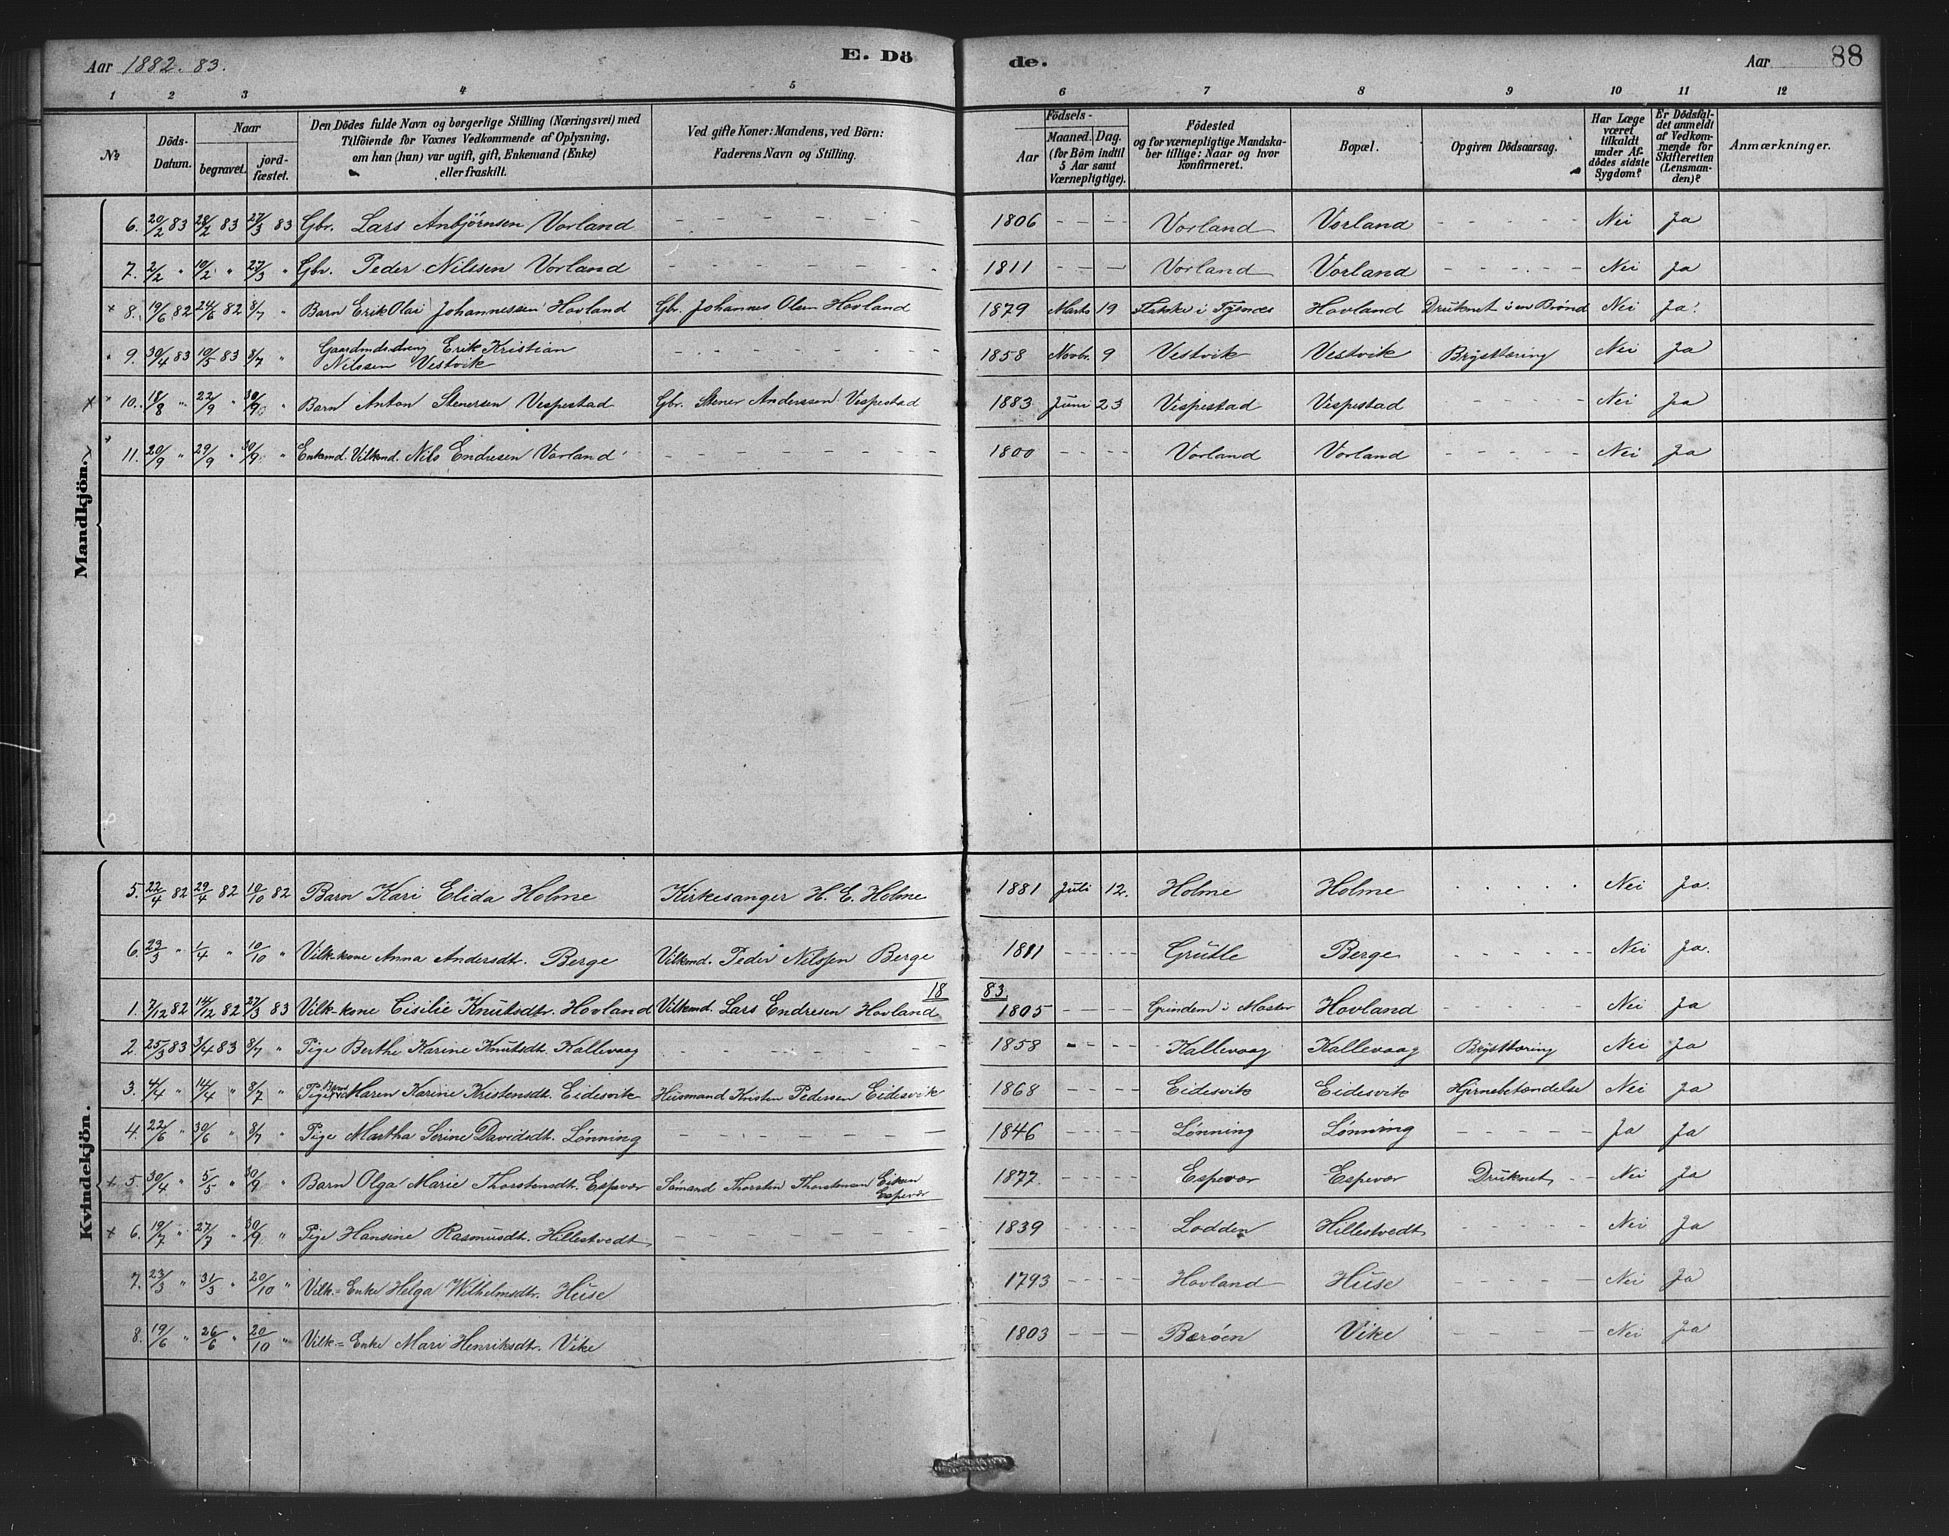 Aar 1882. 83. E. Dö de. Aar 88
1 2 3 4 5 6 7 8 9 10 11 12
No. Döds-Datum. Naar begravet. jordfæstet. Den Dödes fulde Navn og borgerlige Stilling (Næringsvei) med Tilföiende for Voxnes Vedkommende af Oplysning, om han (hun) var ugift, gift, Enkemand (Enke) eller fraskilt. Ved gifte Koner: Mandens, ved Börn: Faderens Navn og Stilling. Födsels- Aar Maaned. Dag. (for Börn indtil 5 Aar samt Værnepligtige). Födested og for værnepligtige Mandskaber tillige: Naar og hvor konfirmeret. Bopæl. Opgiven Dödsaarsag. Har Læge været tilkaldt under Afdödes sidste Sygdom? Er Dödsfaldet anmeldt af Vedkommende for Skifteretten (Lensmanden)? Anmærkninger.
Mandkjön.
6. 20/2 83 28/2 83 27/3 83 Gbr. Lars Anbjørnsen Vorland - - - - - - 1806 - - - - Vorland Vorland - - - - - Nei Ja
7. 2/2 " 10/2 " 27/3 " Gbr. Peder Nilssen Vorland - - - - - - 1811 - - - Vorland Vorland - - - - - Nei Ja
+ 8. 19/6 82 24/6 82 8/7 " Barn Erik Olai Johannessen Hovland Gbr. Johannes Olsen Hovland 1879 Marts 19 Flakke i Tysnes Hovland Druknet i en Brønd Nei Ja.
9. 30/4 83 10/5 83 8/7 " Gaardmdsdreng Erik Kristian
Nilssen Vestvik - - - - - - 1858 Novbr. 9 Vestvik Vestvik Brysttæring Nei Ja
x + 10. 18/8 " 22/9 " 30/9 " Barn Anton Stenersen Vespestad Gbr. Stener Anderssen Vespestad 1883 Juni 23 Vespestad Vespestad - - - - - Nei Ja
+ 11. 20/9 " 29/9 " 30/9 " Enkemd. Vilkmd. Nils Endresen Vorland - - - - - - 1800 - - - - Vorland Vorland - - - - - Nei Ja
Kvindekjön.
5. 22/4 82 29/4 82 10/10 82 Barn Kari Elida Holme Kirkesanger H. E. Holme 1881 Juli 12. Holme Holme - - - - - Nei Ja.
6. 23/3 " 1/4 " 10/10 " Vilk.kone Anna Andersdt. Berge Vilkmd. Peder Nilssen Berge 1811 - - - - Grutle Berge - - - - - Nei Ja.
18 83
1. 7/12 82 14/12 82 27/3 83 Vilk-kone Cisilie Knutsdtr. Hovland Vilkmd. Lars Endresen Hovland 1805 - - - - Grindem i Moster Hovland - - - - - Nei Ja
2. 25/3 83 3/4 83 8/7 " Pige Berthe Karine Knutsdt. Kallevaag - - - - - - 1858 - - - - Kallevaag Kallevaag Brysttæring Nei Ja
3. 4/4 " 14/4 " 8/7 " Pige Maren Karine Kristensdt. Eidesvik Husmand Kristen Pedersen Eidesvik 1868 - - - - Eidesvik Eidesvik Hjernebetændelse Nei Ja
4. 22/6 " 30/6 " 8/7 " Pige Martha Serine Davidsdt. Lønning - - - - - - 1846 - - - - Lønning Lønning - - - - - Ja Ja
+ 5. 30/4 " 5/5 " 30/9 " Barn Olga Marie Thorstensdt. Espevær Sømand Thorsten Thorstensen
Espevær 1877. - - - - Espevær Espevær Druknet - - Nei Ja
+ 6. 19/7 " 27/7 " 30/9 " Pige Hansine Rasmusdt. Hillestvedt - - - - - - 1839 - - - - Lodden Hillestvedt - - - - - Nei Ja
7. 23/3 " 31/3 " 20/10 " Vilk.= Enke Helga Wilhelmsdtr. Huse 1793 - - - - Hovland Huse - - - - - Nei Ja
8. 19/6 " 26/6 " 20/10 " Vilk= Enke Mari Henriksdtr. Vike 1803 - - - - Børøen Vike - - - - - Nei Ja